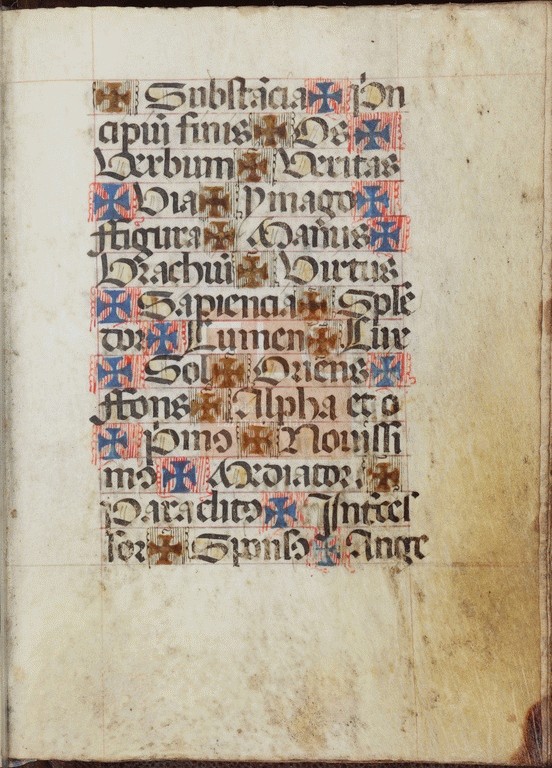 ✠ Substãcia ✠ prin
cipiũ finis ✠ Os ✠
Verbum ✠ Veritas
✠ Via ✠ ymago ✠
ffigura ✠ Manus ✠
Brachiũ ✠ Virtus
✠ Sapiencia ✠ Splẽ
dor ✠ Lumen ✠ Lux
✠ Sol ✠ Oriens ✠
ffons ✠ Alpha et o
✠ primꝰ ✠ Nouissi
mꝰ ✠ Mediator ✠
Paraclitꝰ ✠ Int̃ces
sor ✠ Sponsꝰ ✠ Ange